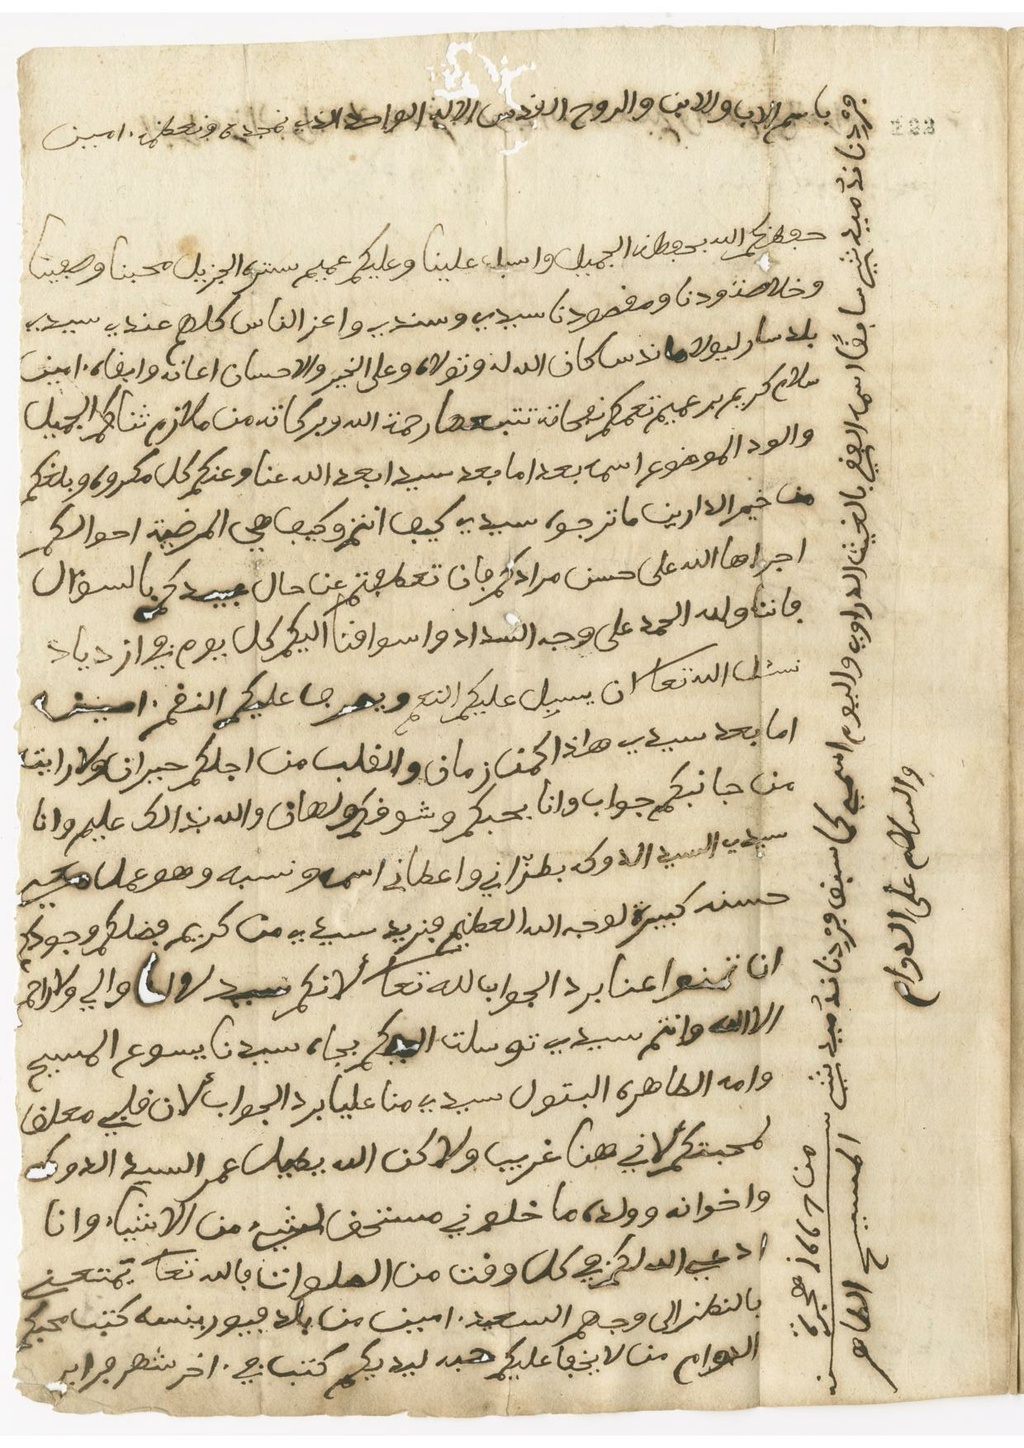 باسم الاب والابن والروح القدس الالاه الواحد الذي نمجده ونعظمه. امين
حفظكم الله بحفظه الجميل واسبل علينا وعليكم عميم ستره الجزيل محبنا وصفينا
وخلاصة ودنا ومقصودنا سيدي وسندي واعز الناس كلهم عندي سيدي
كان الله له وتولاه وعلى الخير والاحسان اعانه وابقاه. امين
سلام كريم بر عميم تعمكم نفحاته تتبعها رحمة الله وبركاته من ملازم ثناكم الجميل
والود الموضوع اسمه بعد اما بعد سيدي ابعد الله عنا وعنكم كل مكروه وبلغكم
من خير الدارين ما ترجوه سيدي كيف انتم وكيف هي المرضية احوالكم
اجراها الله على حسن مرادكم فان تعطفتم عن حال عبيدكم بالسؤال
فاننا ولله الحمد على وجه السداد واسواقنا اليكم كل يوم في ازدياد
نسئل الله تعا ان يسبل عليكم النعم ويصرف عليكم النقم. امين
اما بعد سيدي هاذا كمن زمان والقلب من اجلكم حيران ولا رايت
من جانبكم جواب وانا بحبكم وشوقكم ولهان والله بذالك عليم وانا
سيدي السيد الدوكه بطرّاني واعطاني اسمه ونسبه وهو عمل معي
حسنه كبيرة لوجه الله العظيم فنريد سيدي من كريم فضلكم وجودكم
ان تمنوا عنا برد الجواب لله تعا لانكم سيدي والي ولا راحم
الا الله وانتم سيدي توسلت اليكم بجاه سيدنا يسوع المسيح
وامه الطاهره البتول سيدي منا عليا برد الجواب لان قلبي معلق
لمحبتكم لاني هنا غريب ولاكن الله يطيل عمر السيد الدوكه
واخوانه وولده ما خلوني مستحق لشيء من الاشياء وانا
ادعي الله لكم في كل وقت من الصلوات فالله تعا يمتعني
بالنظر الى وجهكم السعيد. امين من بلد فيورينسه كتب محبكم
الدوام من لا يخفا عليكم ليديكم كتب في. اخر شهر فراير
من ١٦٦٧ هجرة
المسيح الطاهر
سابقا اسمه الفقي بالغيث الدراوي واليوم اسمي كما سبق
والسلام على الدوام